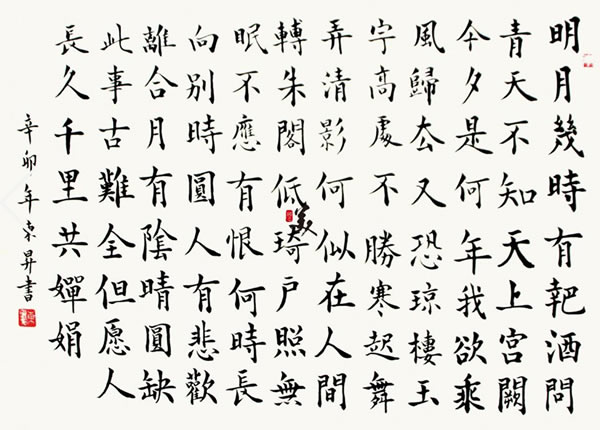 明月幾時有靶酒問
青天不知天上宮闕
今夕是何年我欲乘
風歸厺又恐琼樓玉
宇高處不勝寒起舞
弄清影何似在人間
轉朱閣低琦户照無
眠不應有恨何時長
向别時圓人有悲歡
離合月有陰晴圓缺
此事古難全但愿人
長久千里共嬋娟
辛卯年東昇書